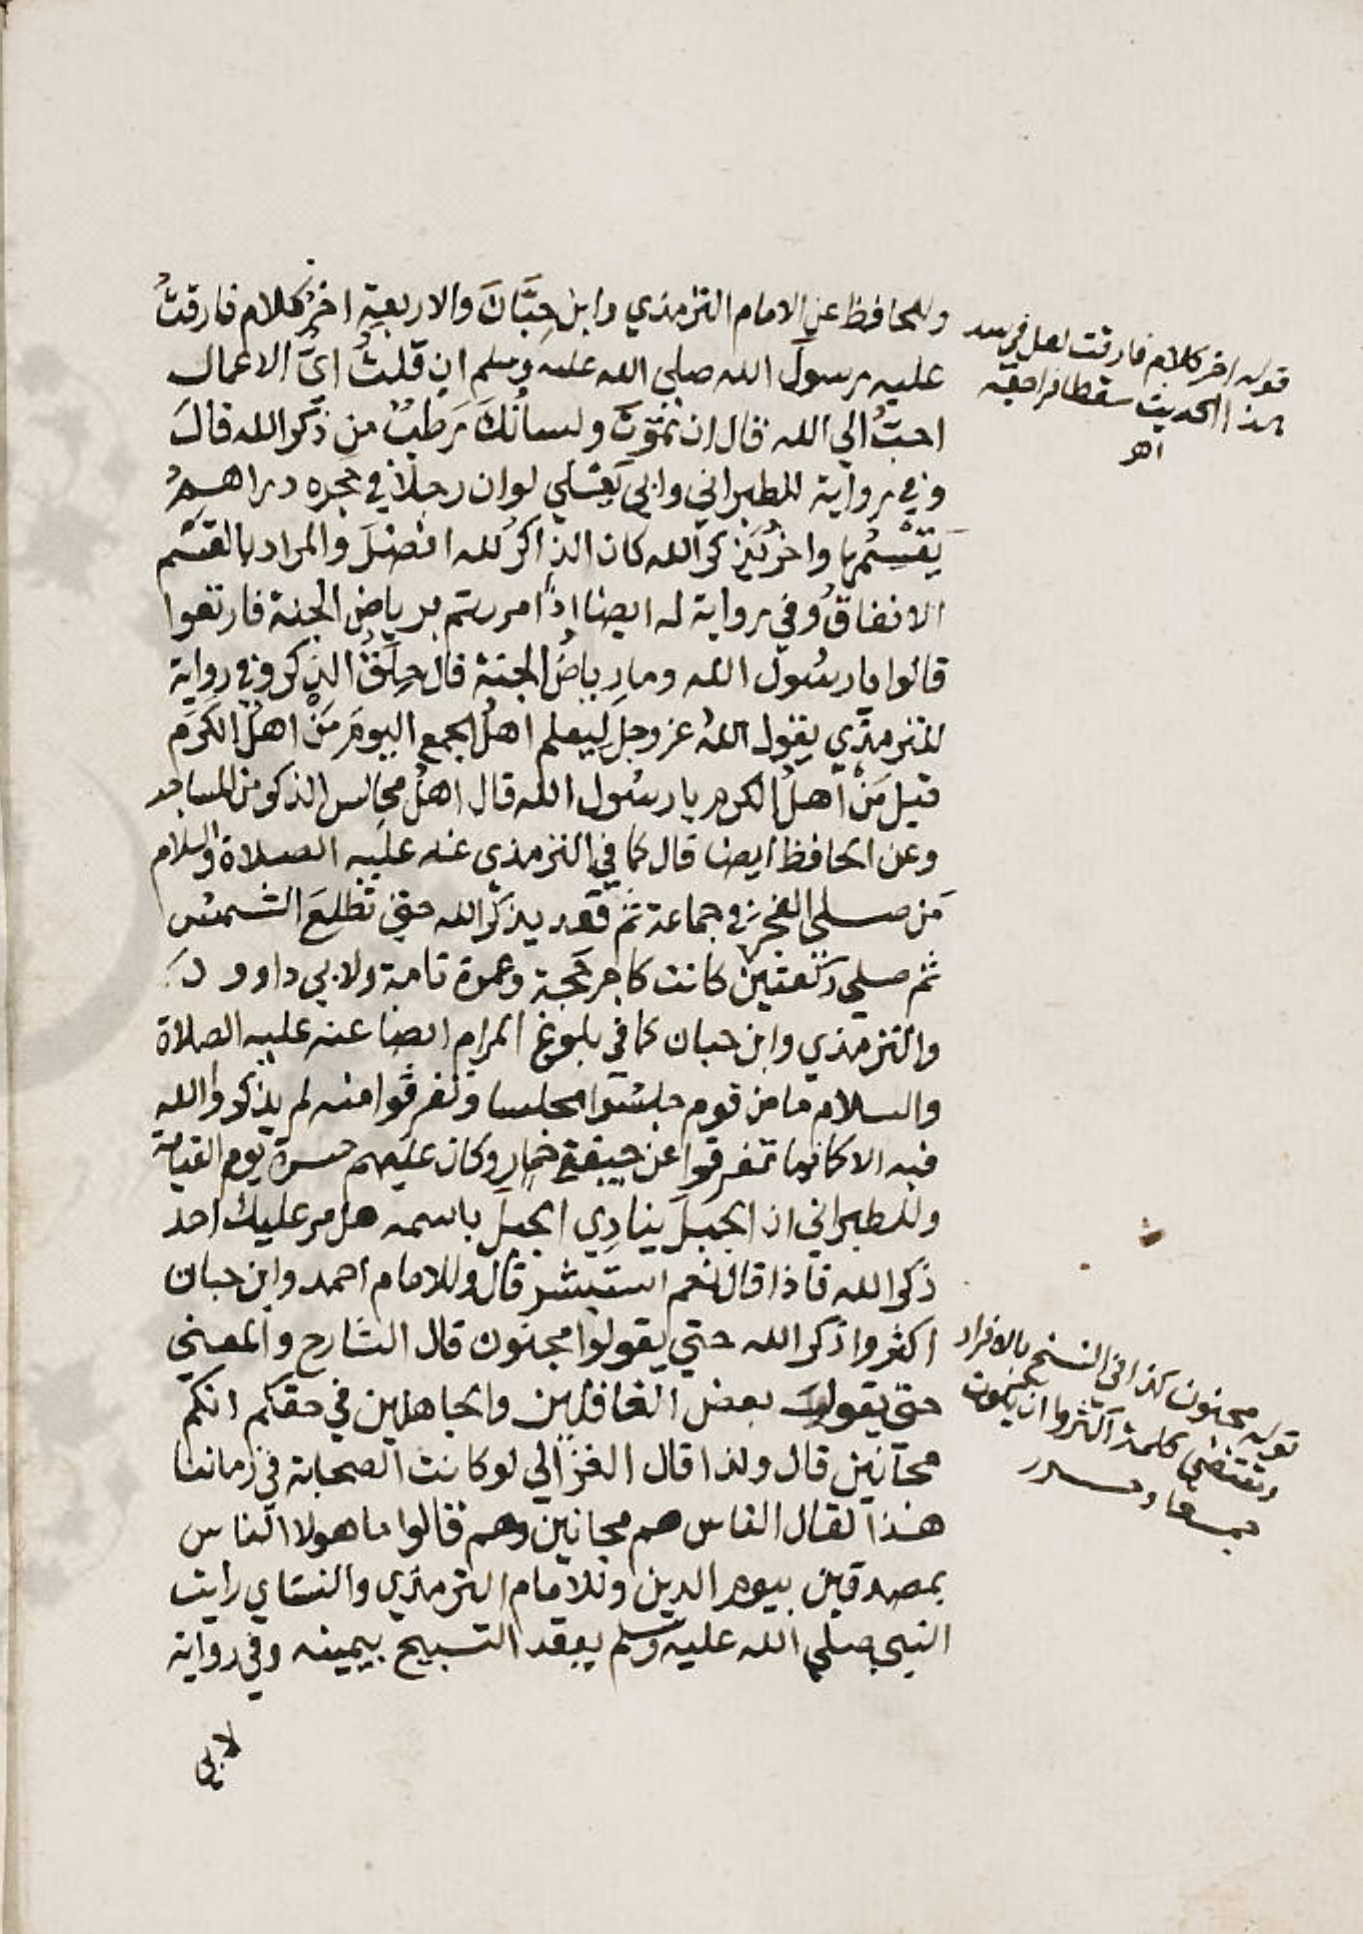 وللحافظ عن الامام الترمذي وابن حِبَّانَ والاربعةِ اخرُ كلام فارقتُ
عليه رسولَ الله صلي الله عليه وسلم ان قلتُ ايُّ الاعمال
احبُّ الي الله قال ان تموتَ ولسانُكَ رَطبٌ من ذكر الله قالَ
وفي رواية للطبراني وابي يَعْلي لو ان رجلاً في حجره دراهمُ
يَقْسِمُها واخرُ يَذكرُ الله كان الذاكرُ لله افضلَ والمراد بالقَسْم
الانفاقُ وفي رواية له ايضا اذا مررتم برياض الجنة فارتعوا
قالوا يا رسُولَ الله وما رياضُ الجنة قال حِلَقُ الذكر وفي رواية
للترمذي يقول اللهُ عز وجل ليعلم اهلُ الجمع اليومَ مَنْ اهلُ الكَرَم
قيل مَنْ اهلُ الكرم يا رسُول الله قال اهلُ مجالس الذكر من المساجد
وعن الحافظ ايضا قال كما في الترمذي عنه عليه الصلاة والسلام
مَن صلي الفجرَ في جماعة ثم قعد يذكرُ الله حتى تطلعَ الشمسُ
ثم صلي ركعتين كانت كاجر حَجة وعمرة تامة ولابي داوودَ
والترمذي وابن حبان كما في بلوغ المرام ايضا عنه عليه الصلاة
والسلام ما من قوم جلسُوا مجلسا وتفرقُوا منه لم يذكروا الله
فيه الا كانما تفرقوا عن جيفة حمارٍ وكان عليهم حسرة يوم القيامة
وللطبراني ان الجبَلَ ينادِي الجبلَ باسمه هل مر عليك احد
ذكر الله فاذا قال نعم استبشر قال وللامام احمد وابن حبان
اكثروا ذكر الله حتي يقولوا مجنون قال الشارح والمعني
حتى يقول بعض الغافلين والجاهلين في حقكم انكم
مجانين قال ولذا قال الغزالي لو كانت الصحابة في زماننا
هذا لقال الناس هم مجانين وهم قالوا ما هولا الناس
بمصدقين بيوم الدين وللامام الترمذي والنسَاي رايت
النبي صلي الله عليه وسلم يعقد التسبيح بيمينه وفي رواية
لابي
قوله اخر كلام فارقت لعل في سند
هذا الحديث سقطا فراجعه
اهر
قوله مجنون كذا في النسخ بالافراد
ومقتضى كلمة اكثروا ان يكون